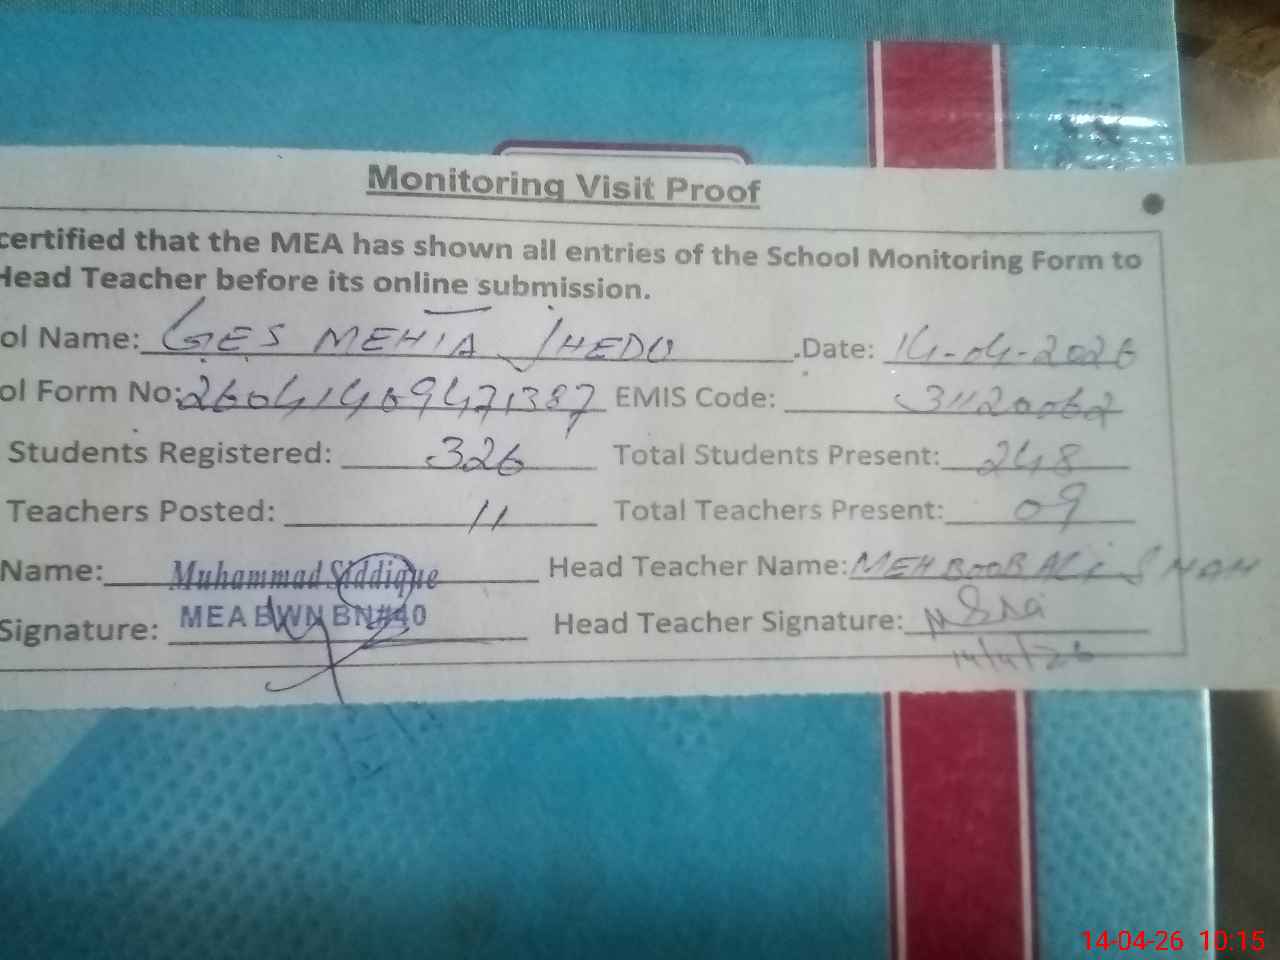 Monitoring Visit Proof
certified that the MEA has shown all entries of the School Monitoring Form to
Head Teacher before its online submission.
ol Name: GES MEHTA JHEDU .Date: 14-04-2026
ol Form No: 26041409471387 EMIS Code: 31120062
Students Registered: 326 Total Students Present: 248
Teachers Posted: 11 Total Teachers Present: 09
Name: Muhammad Siddique Head Teacher Name: MEHBOOB ALI SHAH
Signature: MEA BWN BN#40 Head Teacher Signature:
14/4/26
14-04-26 10:15